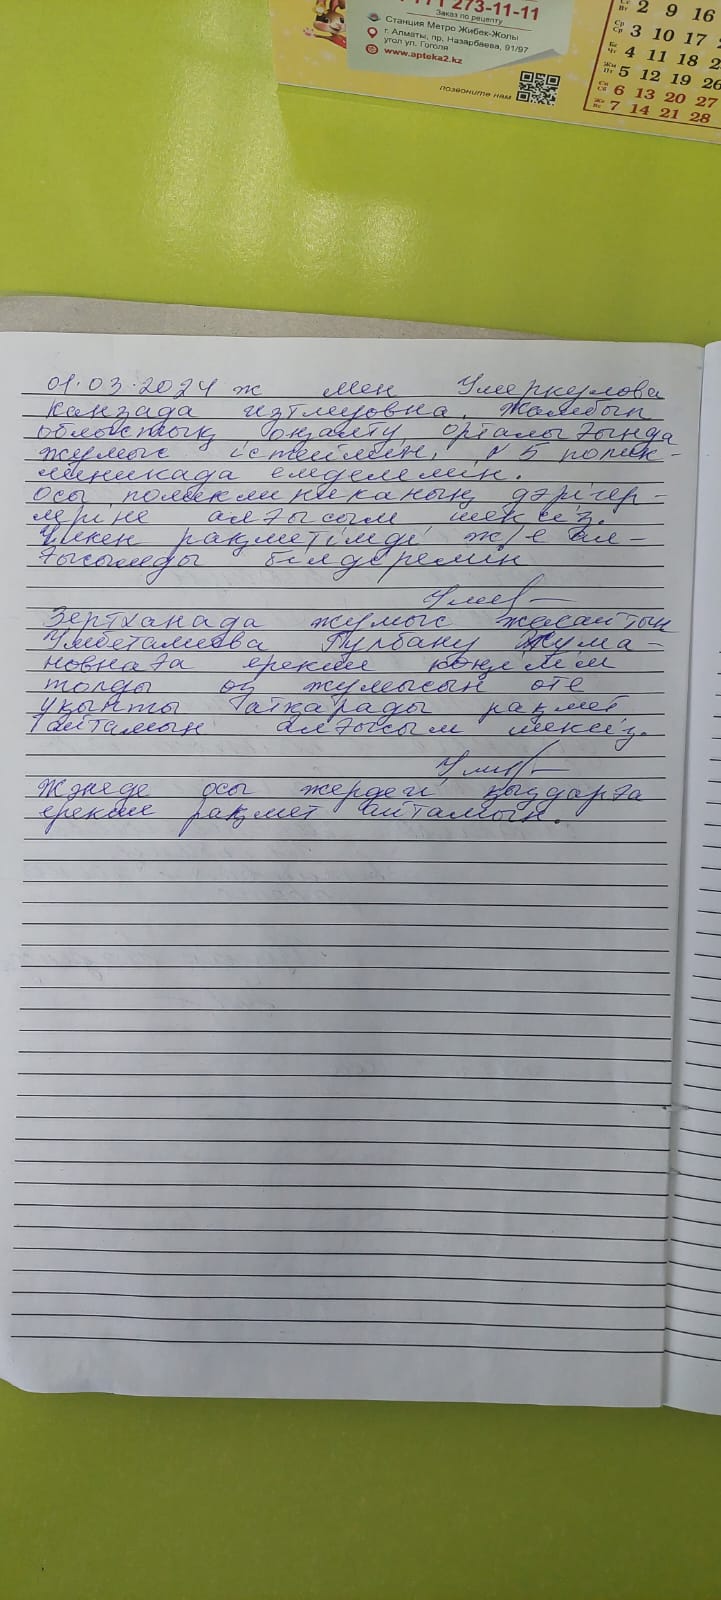 273-11-11
Заказ по рецепту
Станция Метро Жибек-Жолы
г. Алматы, пр. Назарбаева, 91/97
угол ул. Гоголя
www.apteka2.kz
позвоните нам
2 9 16
Ср 3 10 17
4 11 18
Пт 5 12 19 26
Сб 6 13 20 27
7 14 21 28
01.03.2024 ж мен Умеркулова
Канзада Изтлеуовна. Жамбыл
облыстық оңалту орталығында
жумыс істеймін, №5 полик-
линикада емделемін.
осы поликлиниканың дәрігер-
леріне алғысым шексіз.
Үлкен рақметімді ж/е ал-
ғысымды білдеремін
Зертханада жумыс жасайтын
Умбеталиева Гулбану Жума-
новнаға ерекше көңілім
толды өз жумысын өте
уқыпты атқарады рақмет
айтамын алғысым шексіз.
Жәнеде осы жердегі қыздарға
ерекше рақмет айтамын.